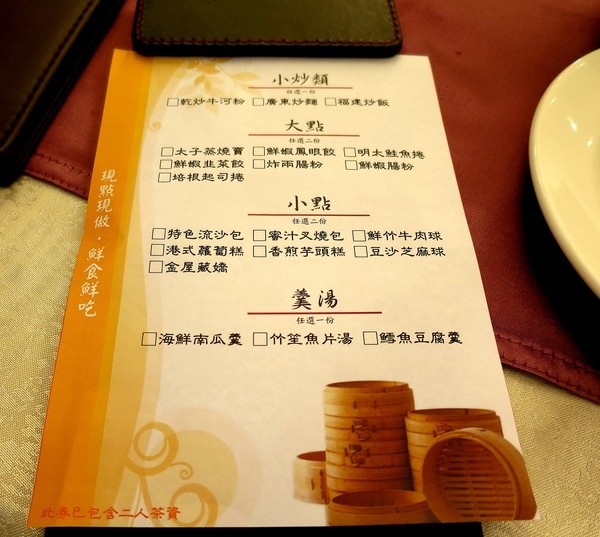 小炒類
任選一份
□乾炒牛河粉 □廣東炒麵 □福建炒飯
大點
任選二份
□太子蒸燒賣 □鮮蝦鳳眼餃 □明太鮭魚捲
□鮮蝦韭菜餃 □炸兩腸粉 □鮮蝦腸粉
□培根起司捲
小點
任選二份
□特色流沙包 □蜜汁叉燒包 □鮮竹牛肉球
□港式蘿蔔糕 □香煎芋頭糕 □豆沙芝麻球
□金屋藏嬌
羹湯
任選一份
□海鮮南瓜羹 □竹笙魚片湯 □鱈魚豆腐羹
現點現做・鮮食鮮吃
此券已包含二人茶資